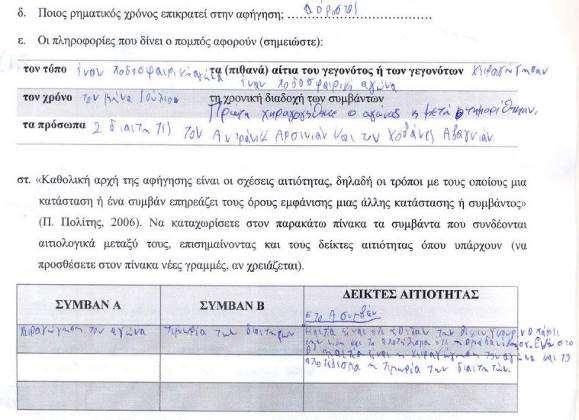 δ. Ποιος ρηματικός χρόνος επικρατεί στην αφήγηση; Αόριστος
ε. Οι πληροφορίες που δίνει ο πομπός αφορούν (σημειώστε):
τον τόπο έναν ποδοσφαιρικό αγώνα τα (πιθανά) αίτια του γεγονότος ή των γεγονότων
έναν ποδοσφαιρικό αγώνα
τον χρόνο τον μήνα Ιούλιο τη χρονική διαδοχή των συμβάντων
Πρώτα χειραγωγήθηκε ο αγώνας & μετά τιμωρήθηκαν
τα πρόσωπα 2 διαιτητές τον Αντρανίκ Αρσινιάν και τον
στ. «Καθολική αρχή της αφήγησης είναι οι σχέσεις αιτιότητας, δηλαδή οι τρόποι με τους οποίους μια
κατάσταση ή ένα συμβάν επηρεάζει τους όρους εμφάνισης μιας άλλης κατάστασης ή συμβάντος»
(Π. Πολίτης, 2006). Να καταχωρίσετε στον παρακάτω πίνακα τα συμβάντα που συνδέονται
αιτιολογικά μεταξύ τους, επισημαίνοντας και τους δείκτες αιτιότητας όπου υπάρχουν (να
προσθέσετε στον πίνακα νέες γραμμές, αν χρειάζεται).
ΣΥΜΒΑΝ Α ΣΥΜΒΑΝ Β ΔΕΙΚΤΕΣ ΑΙΤΙΟΤΗΤΑΣ
στο Α συμβάν
χειραγώγηση του αγώνα τιμωρία των διαιτητών
αποτέλεσμα η τιμωρία των διαιτητών.